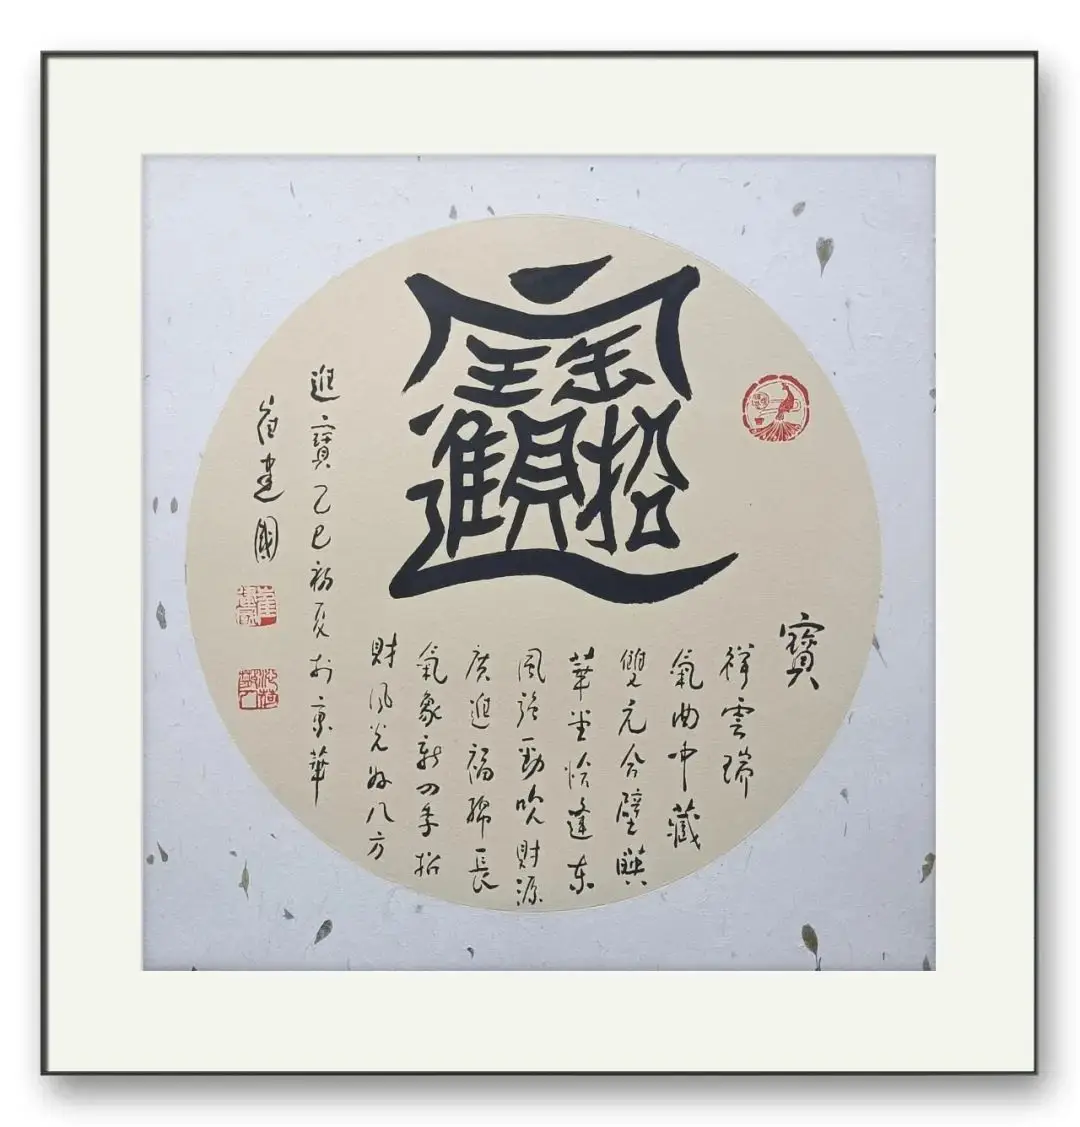 招財進寶
寶
祥雲瑞
氣曲中藏
雙元合璧暎
華堂恰逢東
風強勁吹財源
廣進福綿長
氣象新四季招
財風光好八方
進寶乙巳初夏於京華
崔建國